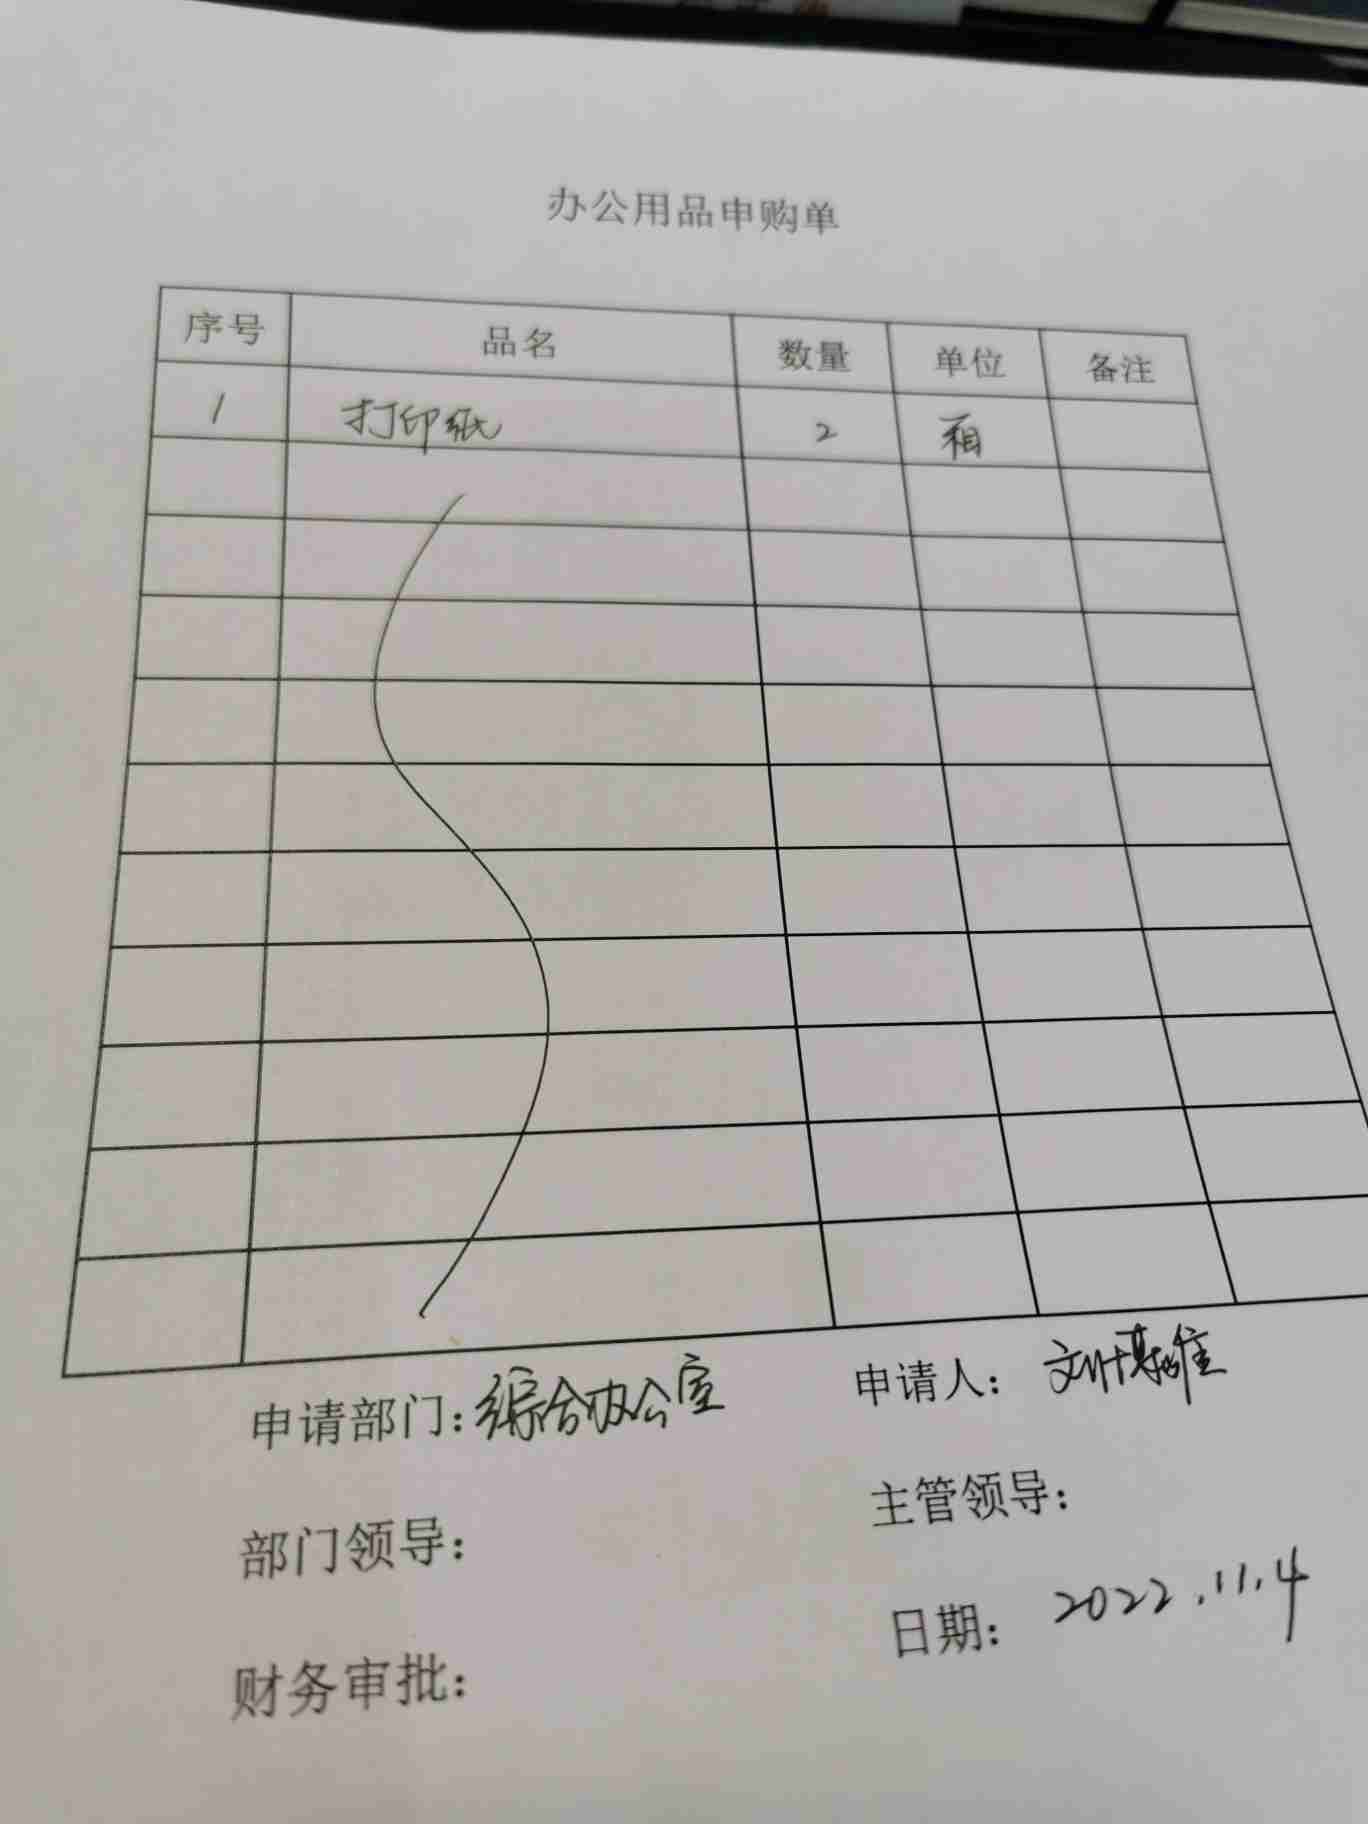 办公用品申购单
序号 品名 数量 单位 备注
1 打印纸 2 箱
申请部门：综合办公室 申请人：
部门领导： 主管领导：
日期：2022.11.4
财务审批：